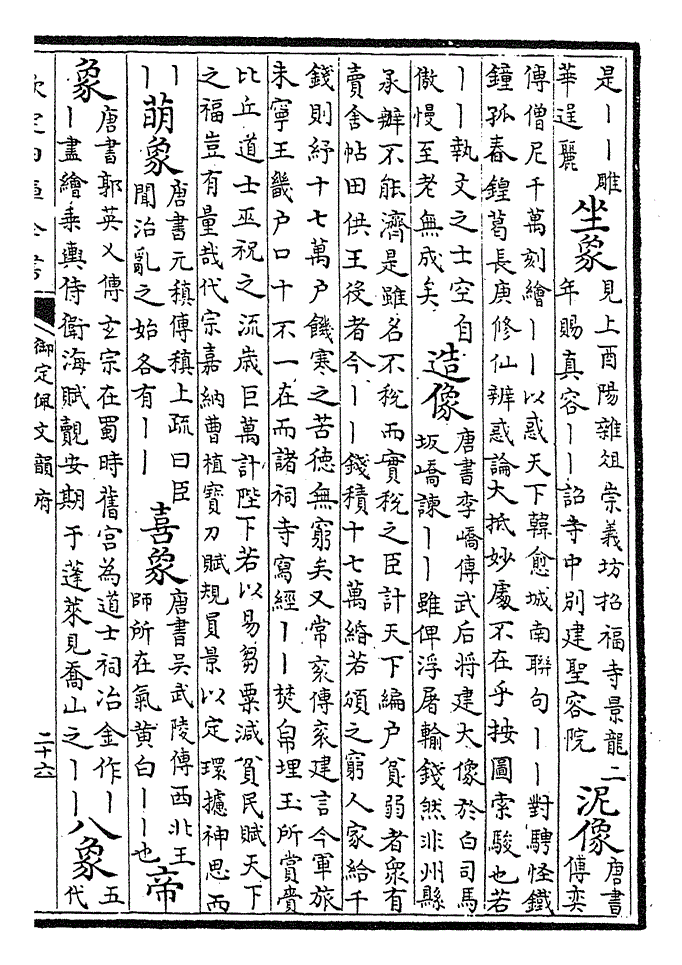 是丨丨雕
華逞麗
坐象
見上酉陽雜俎崇義坊招福寺景龍二
年賜真容丨丨詔寺中别建聖容院
泥像
唐書
傅奕
傳僧尼千萬刻繪丨丨以惑天下韓愈城南聯句丨丨對騁怪鐵
鐘孤舂鍠葛長庚修仙辨惑論大抵妙處不在乎按圖索駿也若
丨丨執文之士空自
傲慢至老無成矣
造像
唐書李嶠傳武后将建大像於白司馬
坂嶠諫丨丨雖俾浮屠輸錢然非州縣
承辦不能濟是雖名不税而實税之臣計天下編户貧弱者衆有
賣舍帖田供王役者今丨丨錢積十七萬緡若頒之窮人家給千
錢則紓十七萬户饑寒之苦德無窮矣又常衮傳衮建言今軍旅
未寧王畿户口十不一在而諸祠寺寫經丨丨焚帛埋玉所賞賚
比丘道士巫祝之流歳巨萬計陛下若以易芻粟減貧民賦天下
之福豈有量哉代宗嘉納曹植寶刀賦規員景以定環攄神思而
丨
丨
萌象
唐書元稹傳稹上疏曰臣
聞治亂之始各有丨丨
喜象
唐書吳武陵傳西北王
師所在氣黄白丨丨也
帝
象
唐書郭英乂傳玄宗在蜀時舊宫為道士祠冶金作丨
丨盡繪乘輿侍衛海賦覿安期于蓬萊見喬山之丨丨
八象
五
代
欽定四庫全書
御定佩文韻府
二十六